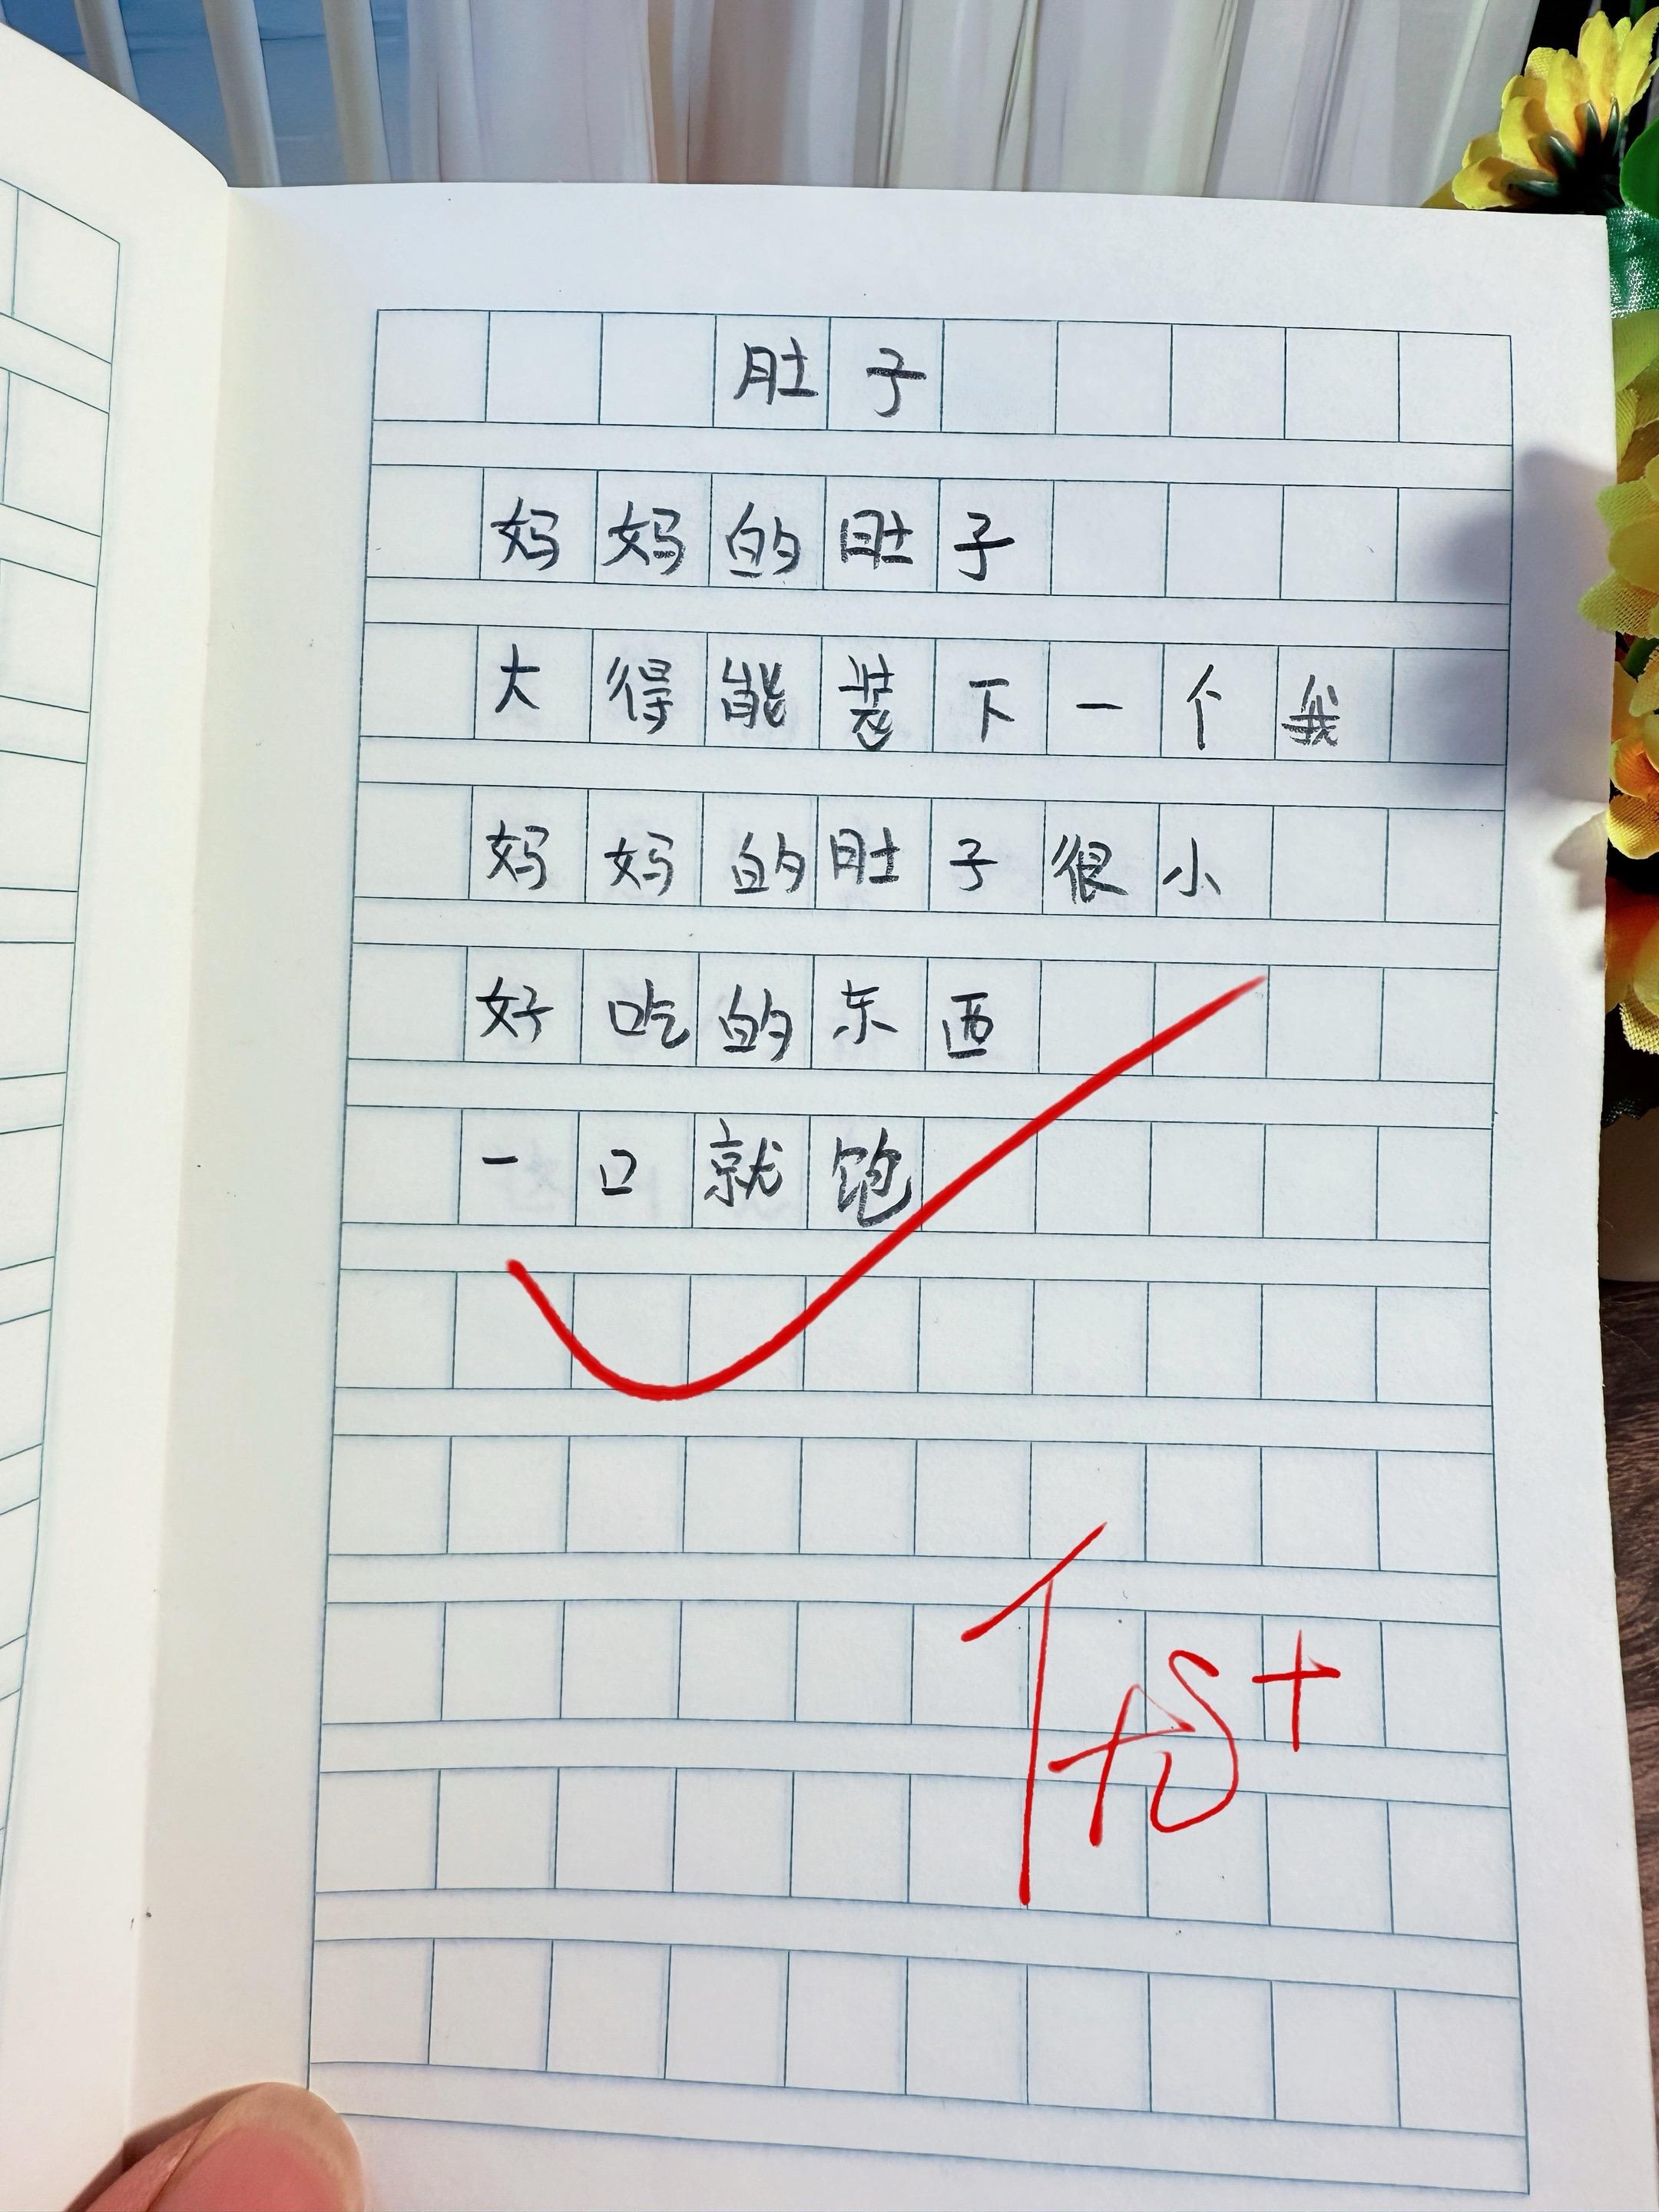 肚子
妈妈的肚子
大得能装下一个我
妈妈的肚子很小
好吃的东西
一口就饱
优+